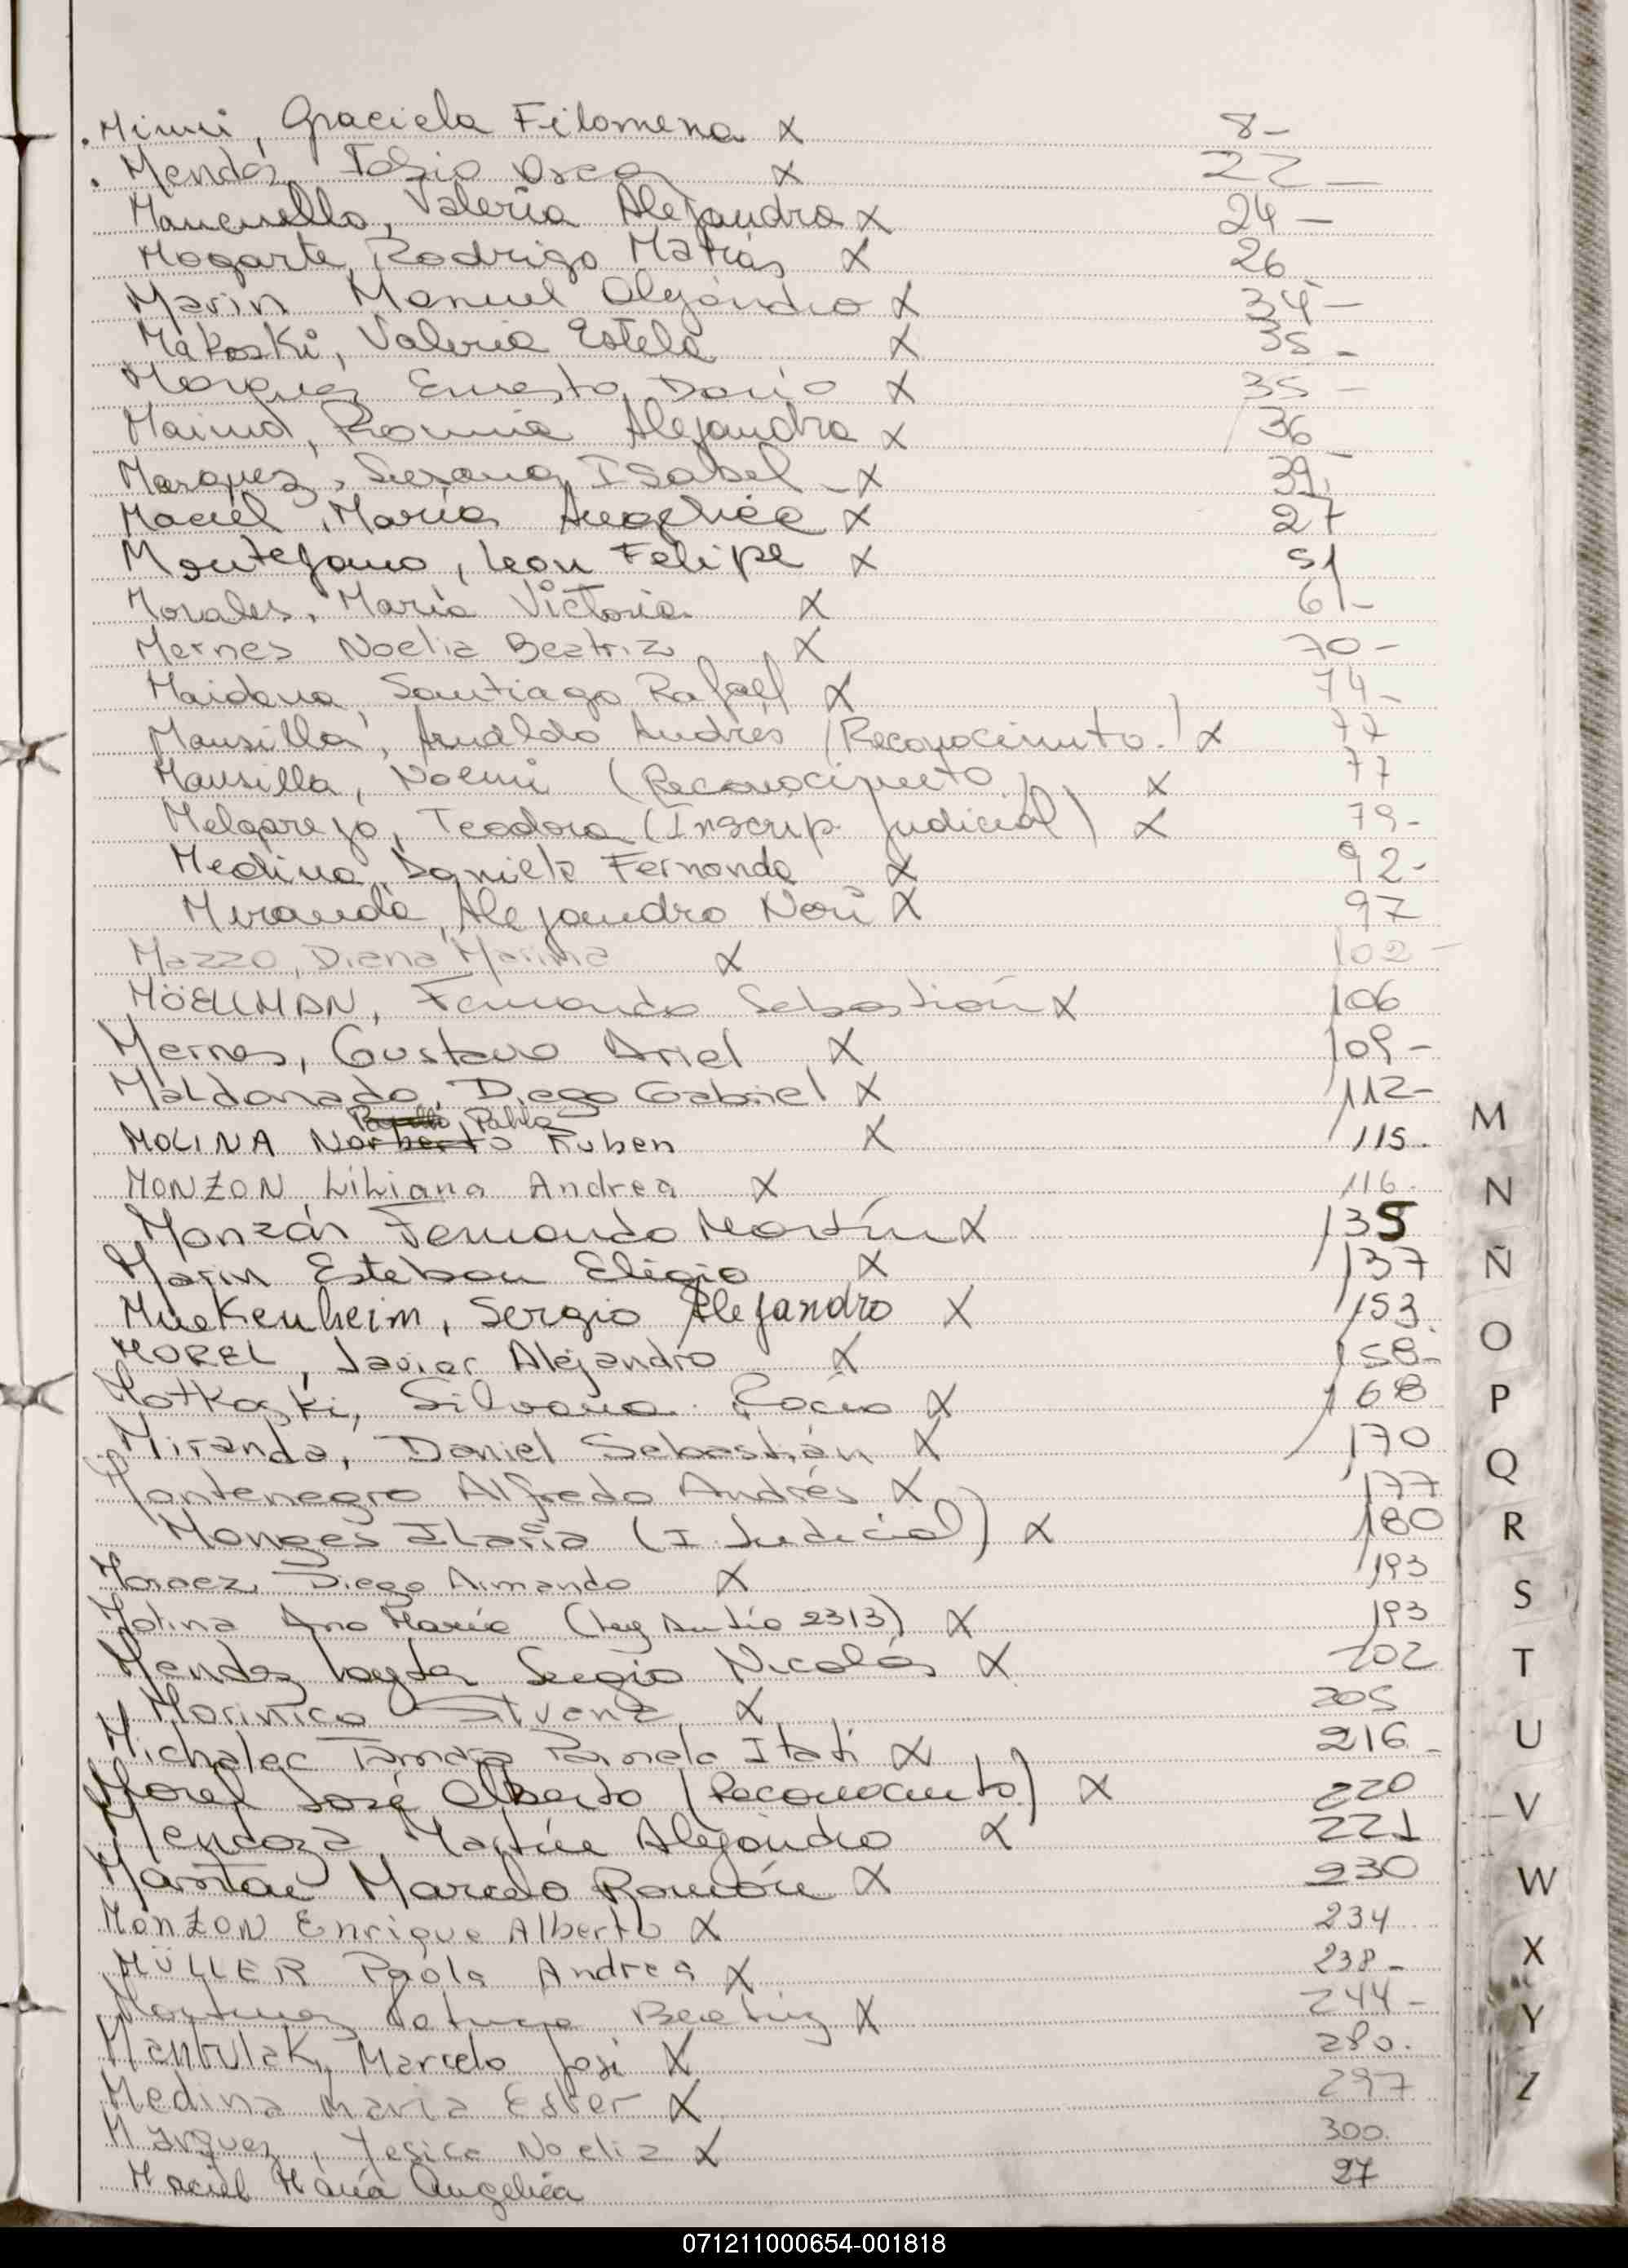 Graciela Filomena X 8-
X 22-
Mancuello, Valeria Alejandra X 24-
Mogarte, Rodrigo Matías X 26
Marin Manuel Alejandro X 34-
Makoski, Valeria Estela X 35-
Marquez Ernesto Dario X 35-
Romina Alejandra X 36-
Marquez, Susana Isabel - X 39.
Maciel, María Angelica X 27
Montefano, Leon Felipe X 51
Morales, María Victoria X 61-
Mernes Noelia Beatriz X 70-
Maidana, Santiago Rafael X 74-
Mansilla, Arnaldo Andrés (Reconocimiento.) X 77
Mansilla, Noemi (Reconocimiento) X 77
Melgarejo, Teodora (Inscrip. Judicial) X 79-
Medina, Daniela Fernanda X 92-
Miranda, Alejandro X 97
Mazzo, Diana Marina X 102-
MÖELLMAN, Fernando Sebastián X 106
Mernes, Gustavo Ariel X 109-
Maldonado, Diego Gabriel X 112-
Pablo
MOLINA Norberto Ruben X 115.
MONZON Liliana Andrea X 116.
Monzón Fernando Martín X 135
Marin Esteban Eligio X 137
Muekenheim, Sergio Alejandro X 153.
MOREL, Javier Alejandro X 158-
Motkoski, Silvana Rocío X 168
Miranda, Daniel Sebastián X 170
Montenegro Alfredo Andrés X 177
Monges Ilaria (I. Judicial) X 180
Moraez, Diego Armando X 193
Molina Ana María (Ley 2313) X 193
Mendez Sergio Nicolás X 202
Silvana X 205
Michalec Pamela Itatí X 216-
Morel José Alberto (Reconocimiento) X 220
Mendoza Martín Alejandro X 221
Marcelo Román X 230
MONZON Enrique Alberto X 234
MÜLLER Paola Andrea X 238-
Martinez Beatriz X 244-
Marcelo José X 280.
Medina Maria Ester X 297
Marquez, Yesica Noelia X 300.
Maciel María Angelica 27
M
N
Ñ
O
P
Q
R
S
T
U
V
W
X
Y
Z
071211000654-001818